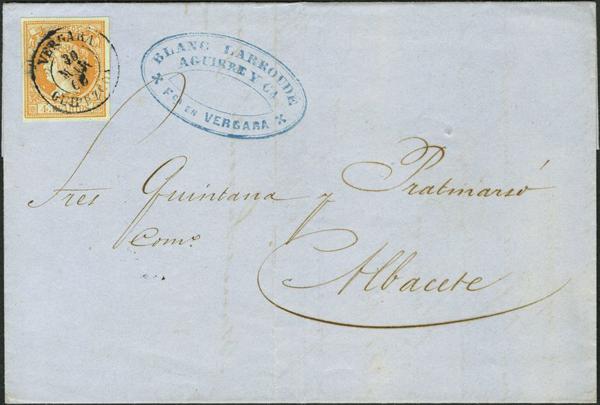 VERGARA
30
MAR
60
GUIPUZCOA
BLANC LARROUDE
AGUIRRE Y CA
Fca EN VERGARA
Sres Quintana y Pratmarsó
Como
Albacete